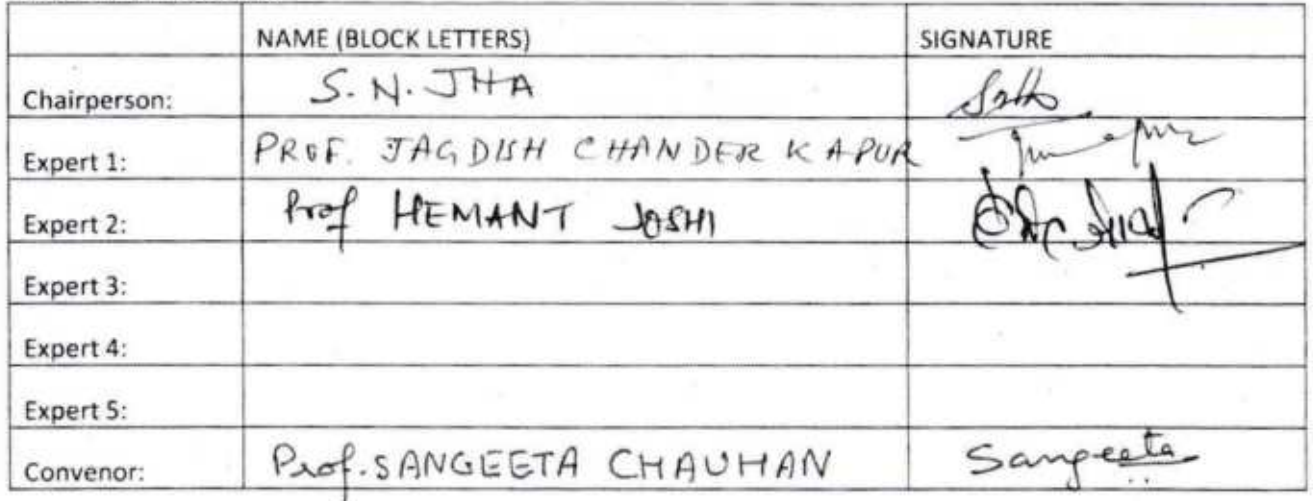 NAME (BLOCK LETTERS) SIGNATURE
Chairperson: S. N. JHA
Expert 1: PROF. JAGDISH CHANDER KAPUR
Expert 2: Prof HEMANT JOSHI
Expert 3:
Expert 4:
Expert 5:
Convenor: Prof. SANGEETA CHAUHAN Sangeeta